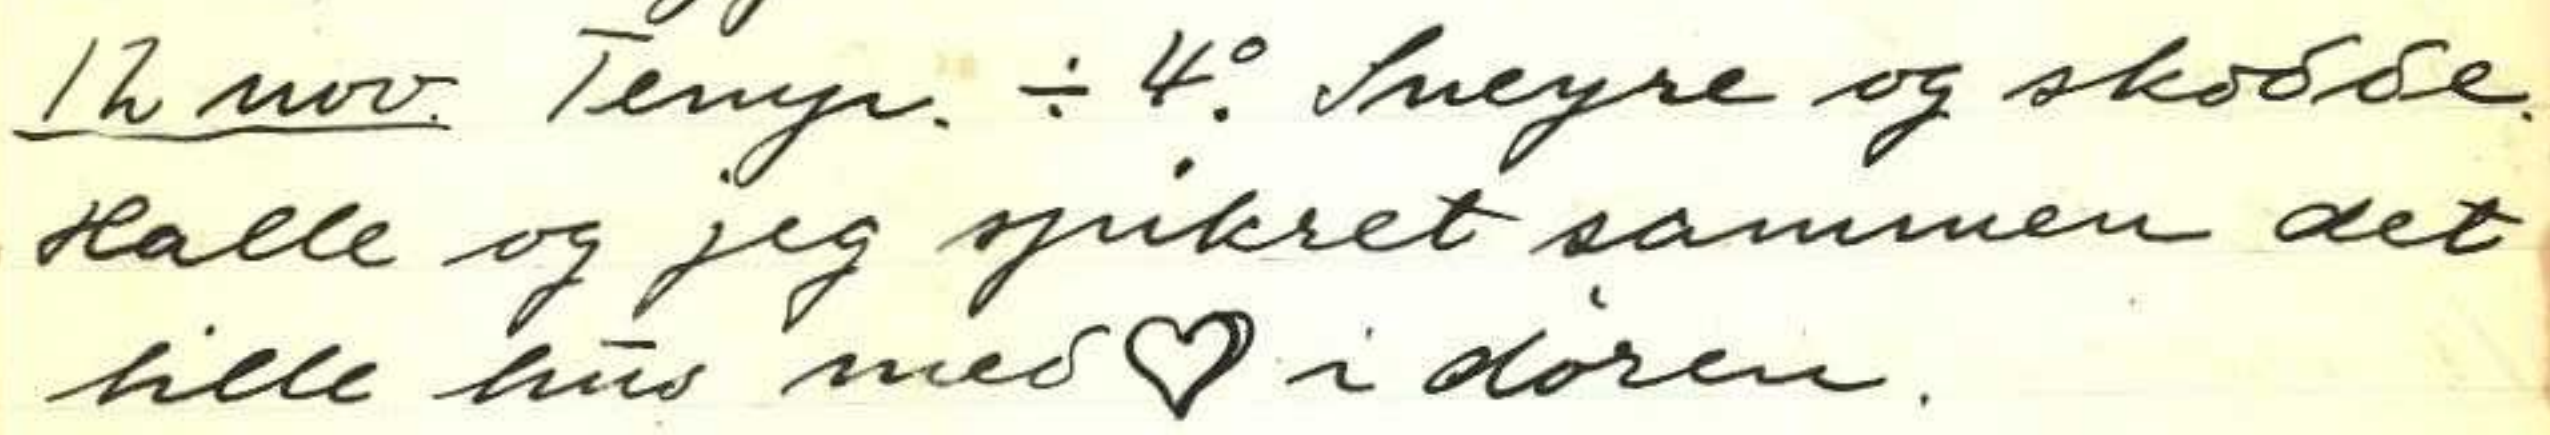 12 nov. Temp. ÷ 4°. Sneyre og skodde.
Halle og jeg spikret sammen det
lille hus med ♡ i døren.